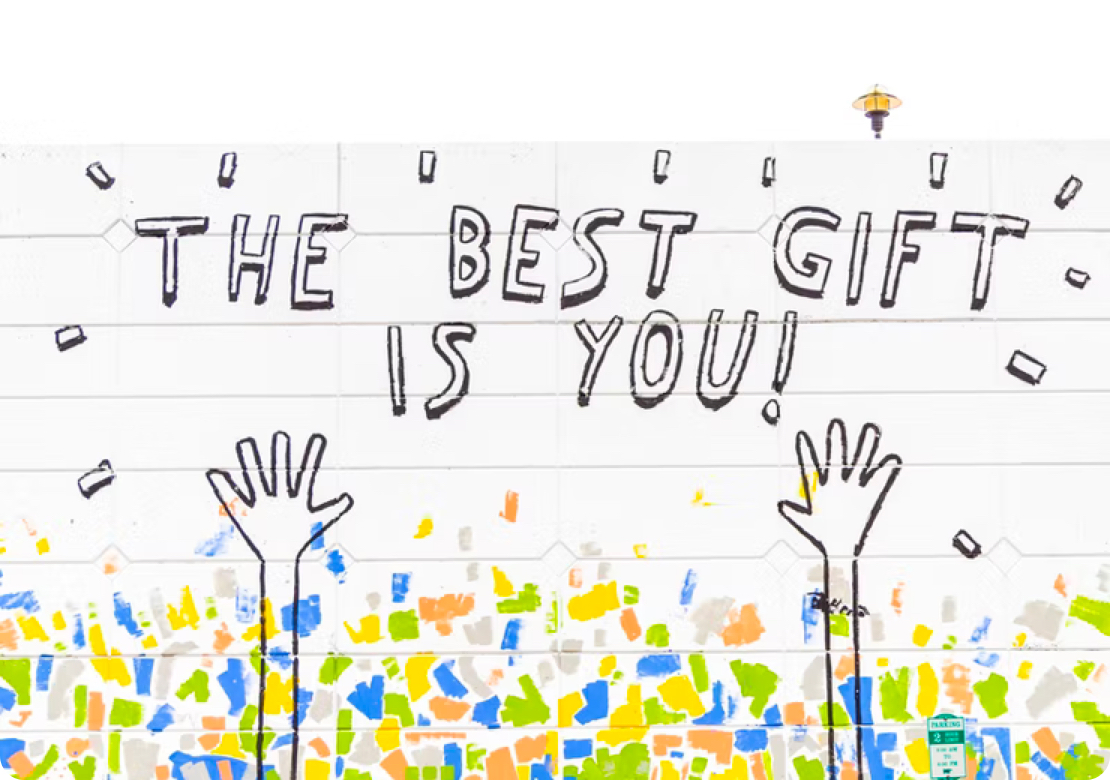 THE BEST GIFT
IS YOU!
PARKING
2
TO